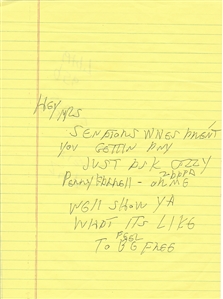 HEY MRS
SENATORS WIVES AREN'T
YOU GETTIN ANY
JUST ASK OZZY
ZAPPA
PERRY FARRELL - OR ME
WE'LL SHOW YA
WHAT ITS LIKE
FEEL
TO BE FREE